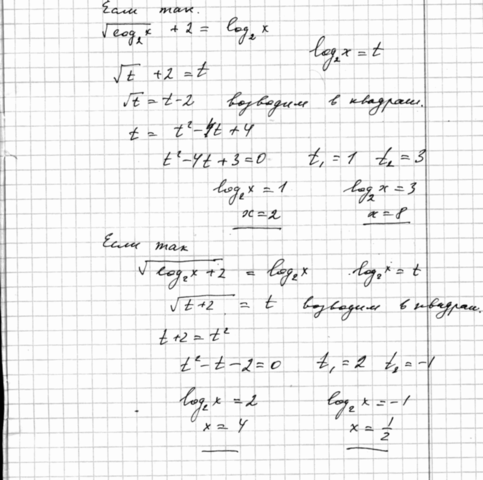 Если так.
√log₂x + 2 = log₂x
log₂x = t
√t + 2 = t
√t = t - 2 возводим в квадрат.
t = t² - 4t + 4
t² - 4t + 3 = 0 t₁ = 1 t₂ = 3
log₂x = 1 log₂x = 3
x = 2 x = 8
Если так
√(log₂x + 2) = log₂x log₂x = t
√(t + 2) = t возводим в квадрат.
t + 2 = t²
t² - t - 2 = 0 t₁ = 2 t₂ = -1
log₂x = 2 log₂x = -1
x = 4 x = 1/2